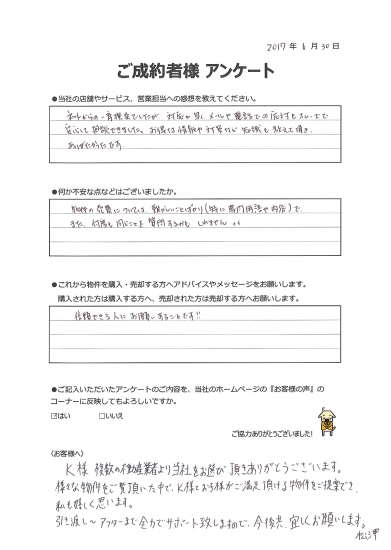 2017 年 1 月 30 日
ご成約者様 アンケート
●当社の店舗やサービス、営業担当への感想を教えてください。
ネットからの一斉調査でしたが 対応が早く メールや電話での応対も
安心して 相談できました。お得な情報や対策など知識も教えて頂き
ありがたかったです。
●何か不安な点などはございましたか。
物件の売買については、難かしいことばかり(特に専門用語や内容)で、
また、何度も同じことを質問するかも しれません、、
●これから物件を購入・売却する方へアドバイスやメッセージをお願いします。
購入された方は購入する方へ、売却された方は売却する方へお願いします。
信頼できる人にお願いすることです!!
●ご記入いただいたアンケートのご内容を、当社のホームページの『お客様の声』の
コーナーに反映してもよろしいですか。
☑はい □いいえ
ご協力ありがとうございました!
〈お客様へ〉
K様 複数の不動産業者より当社をお選び頂きありがとうございます。
様々な物件をご覧頂いた中で、K様とお子様がご満足頂ける物件をご提案でき、
私も嬉しく思います。
引き渡し〜アフターまで全力でサポート致しますので、今後共、宜しくお願いします。